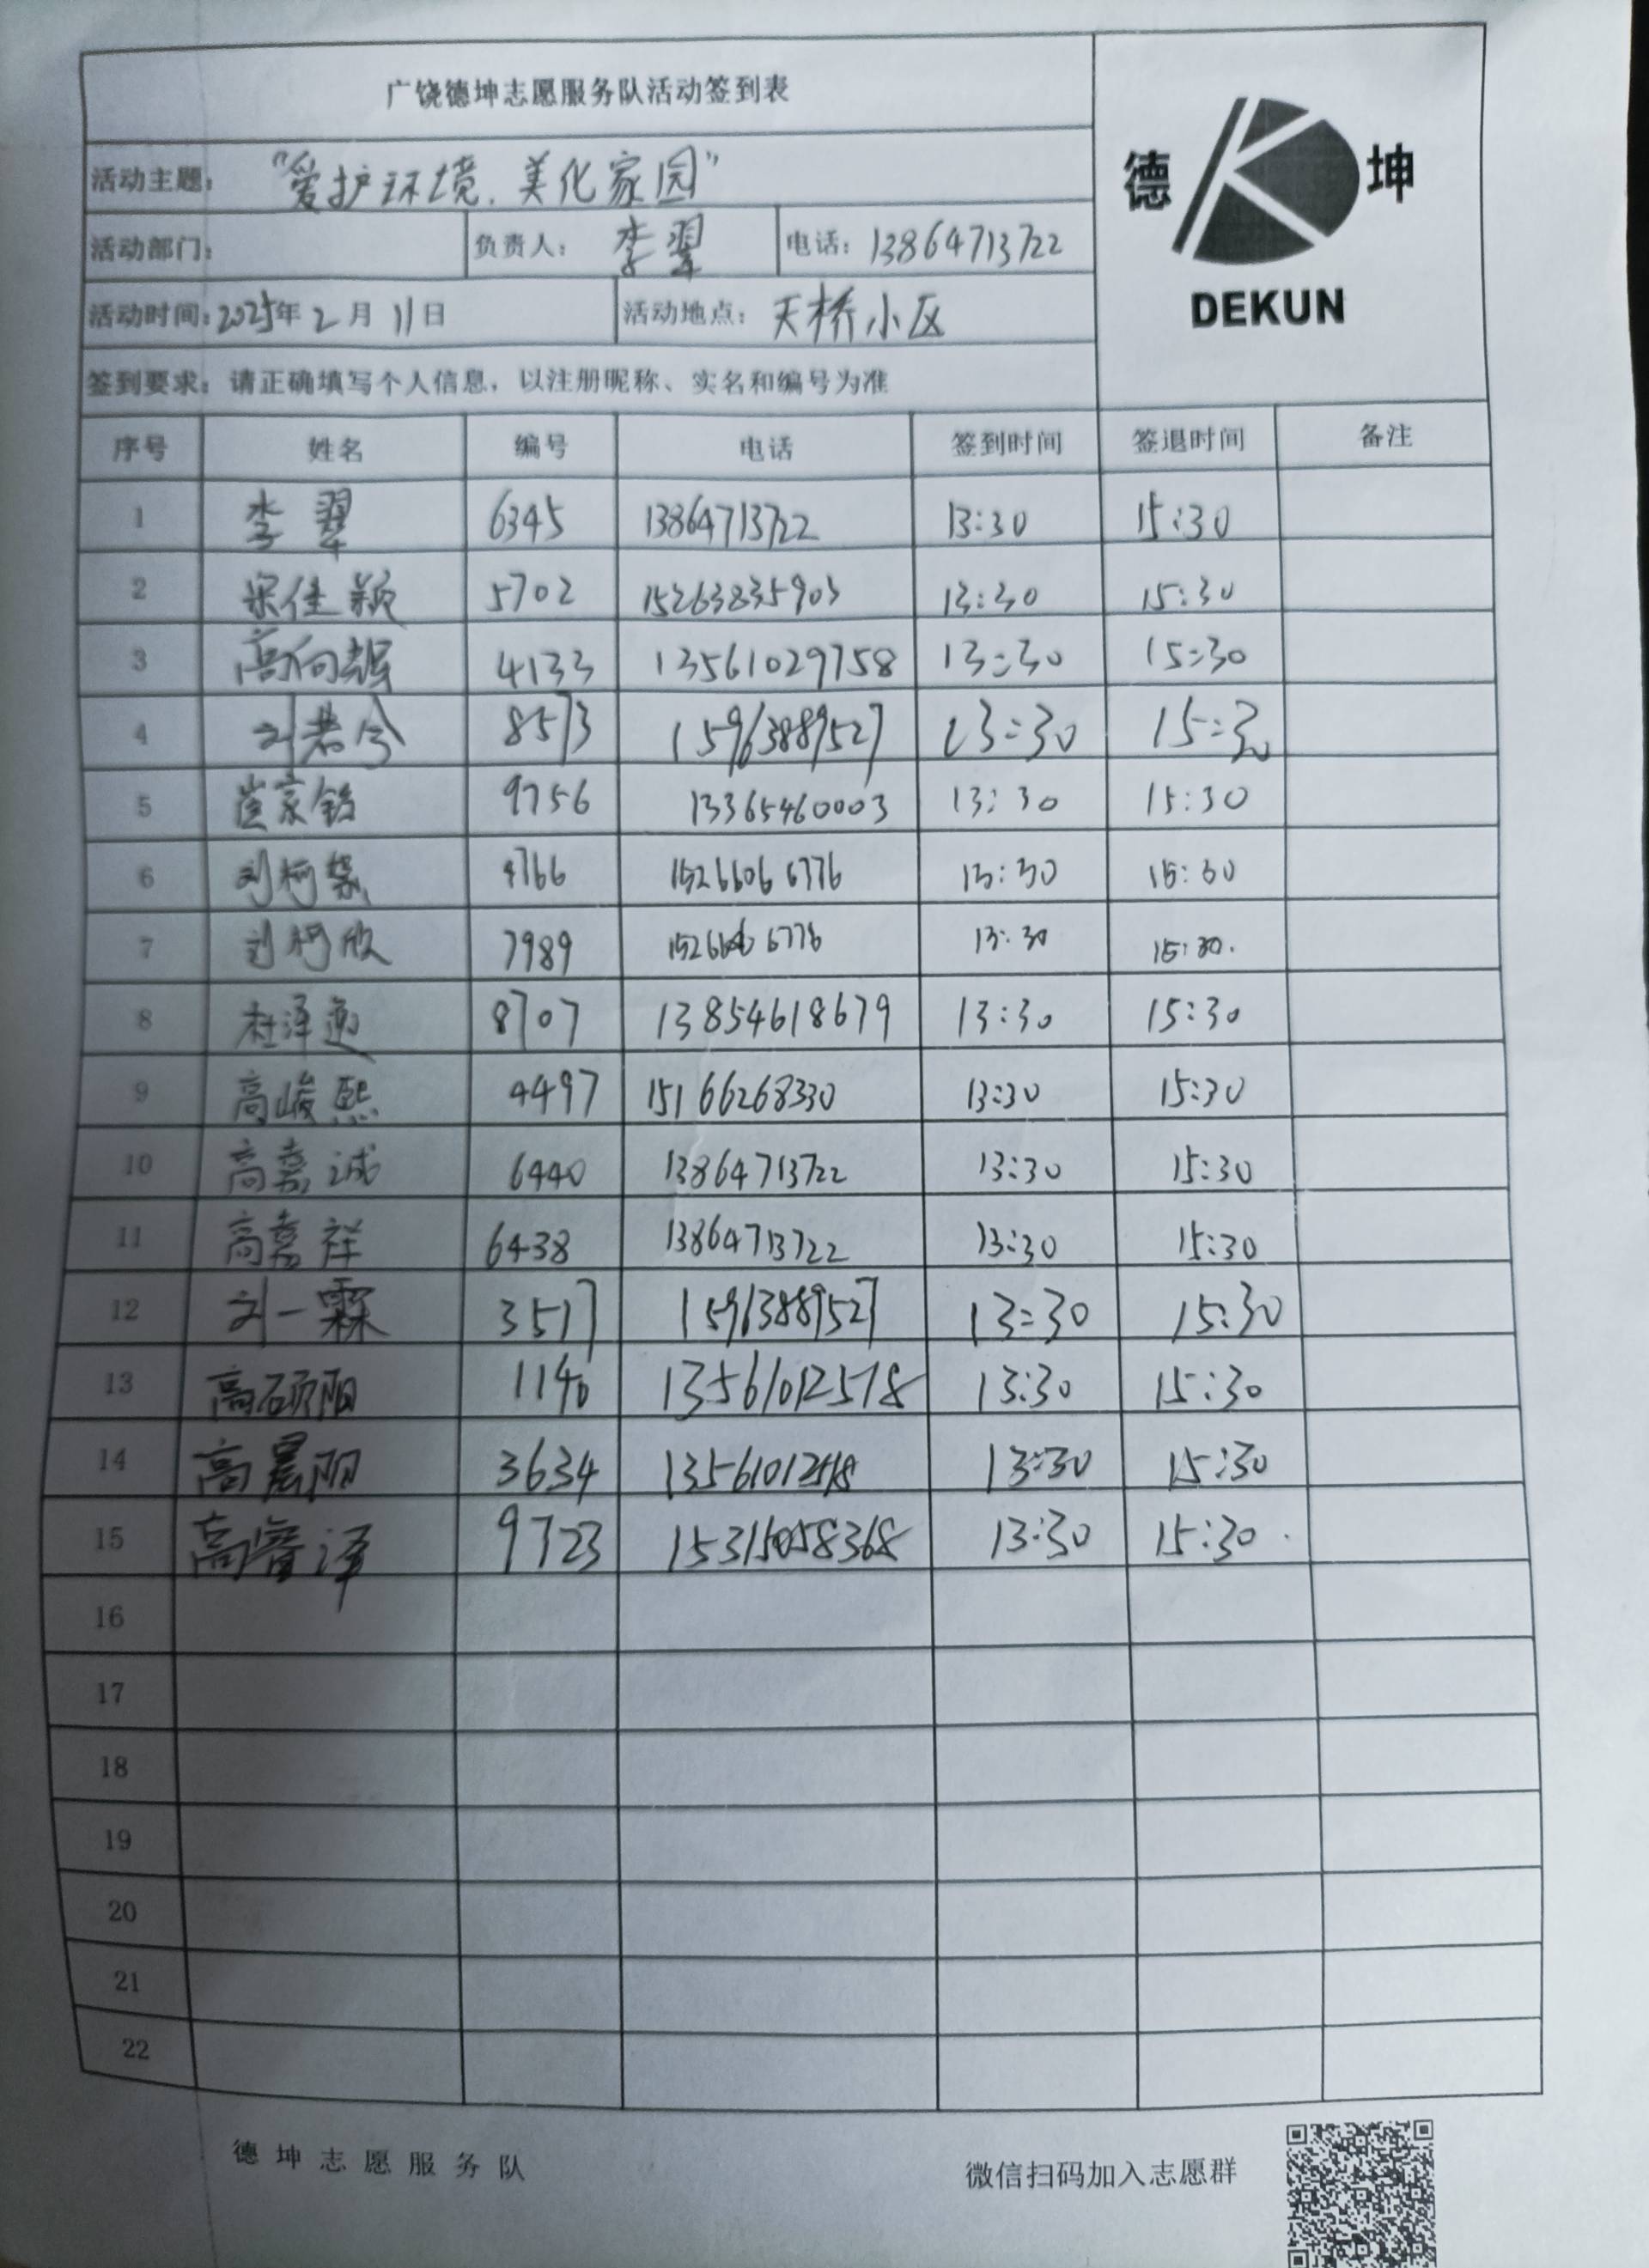 广饶德坤志愿服务队活动签到表
德 坤
DEKUN
活动主题：“爱护环境、美化家园”
活动部门： 负责人：李翠 电话：13864713722
活动时间：2025年2月11日 活动地点：天桥小区
签到要求：请正确填写个人信息，以注册昵称、实名和编号为准
序号 姓名 编号 电话 签到时间 签退时间 备注
1 李翠 6345 13864713722 13:30 15:30
2 宋佳颖 5702 15263835903 13:30 15:30
3 高向超 4133 13561029758 13:30 15:30
4 刘若兮 8573 15963889527 13:30 15:30
5 崔家铭 9756 13365460003 13:30 15:30
6 刘柯 4766 15266066776 13:30 15:30
7 刘柯欣 7989 15266066776 13:30 15:30.
8 杜泽逸 8707 13854618679 13:30 15:30
9 高峻熙 4497 15166268330 13:30 15:30
10 高嘉诚 6440 13864713722 13:30 15:30
11 高嘉祥 6438 13864713722 13:30 15:30
12 刘一霖 3517 15963889527 13:30 15:30
13 高硕阳 1140 13561012518 13:30 15:30
14 高晨阳 3634 13561012518 13:30 15:30
15 高睿泽 9723 15315058368 13:30 15:30
16
17
18
19
20
21
22
德坤志愿服务队 微信扫码加入志愿群